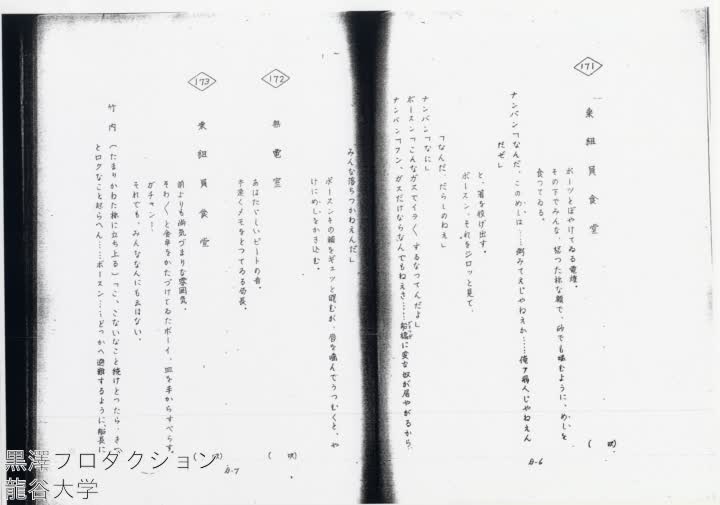 171
乗組員食堂
ボーッとぼやけてゐる電燈。
その下でみんな、怒つた様な顔で、砂でも噛むように、めしを
食つてゐる。
ナンバン「なんだ、このめしは……粥みてえじやねえか……俺ア病人じやねえん
だぜ」
と、箸を投げ出す。
ボースン、それをジロッと見て、
「なんだ、だらしのねえ」
ナンバン「なに」
ボースン「こんなガスでイライラするなつてんだよ」
ナンバン「フン、ガスだけならなんでもねえさ……船橋に変な奴が居やがるから、
( 次 )
B-6
みんな落ちつかねえんだ」
ボースンその顔をギュッと睨むが、唇を噛んでうつむくと、や
けにめしをかき込む。
172
無電室
あはたゞしいビートの音。
手速くメモをとつてゐる局長。
( 次 )
173
乗組員食堂
前よりも尚気づまりな雰囲気。
そわそわと食卓をかたづけてゐたボーイ、皿を手からすべらす。
ガチャン…
それでも、みんななんにも云はない。
竹内(たまりかねた様に立ち上る)「こ、こないなこと続けとつたら、きつ
とロクなこと起らへん……ボースン……どつかへ避難するように、船長に
( 次 )
B-7
黒澤プロダクション
龍谷大学